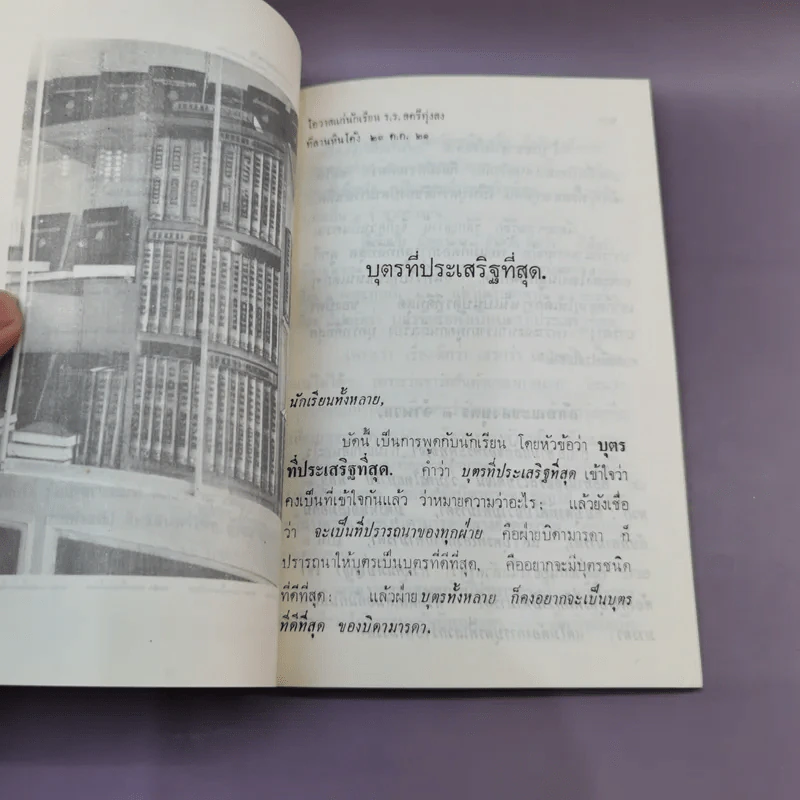 โอวาทแก่นักเรียน ร.ร. สตรีทุ่งสง
ที่ลานหินโค้ง ๒๑ ต.ค. ๒๑
บุตรที่ประเสริฐที่สุด.
นักเรียนทั้งหลาย,
บัดนี้ เป็นการพูดกับนักเรียน โดยหัวข้อว่า บุตร
ที่ประเสริฐที่สุด. คำว่า บุตรที่ประเสริฐที่สุด เข้าใจว่า
คงเป็นที่เข้าใจกันแล้ว ว่าหมายความว่าอะไร; แล้วยังเชื่อ
ว่า จะเป็นที่ปรารถนาของทุกฝ่าย คือฝ่ายบิดามารดา ก็
ปรารถนาให้บุตรเป็นบุตรที่ดีที่สุด, คืออยากจะมีบุตรชนิด
ที่ดีที่สุด; แล้วฝ่ายบุตรทั้งหลาย ก็คงอยากจะเป็นบุตร
ที่ดีที่สุด ของบิดามารดา.